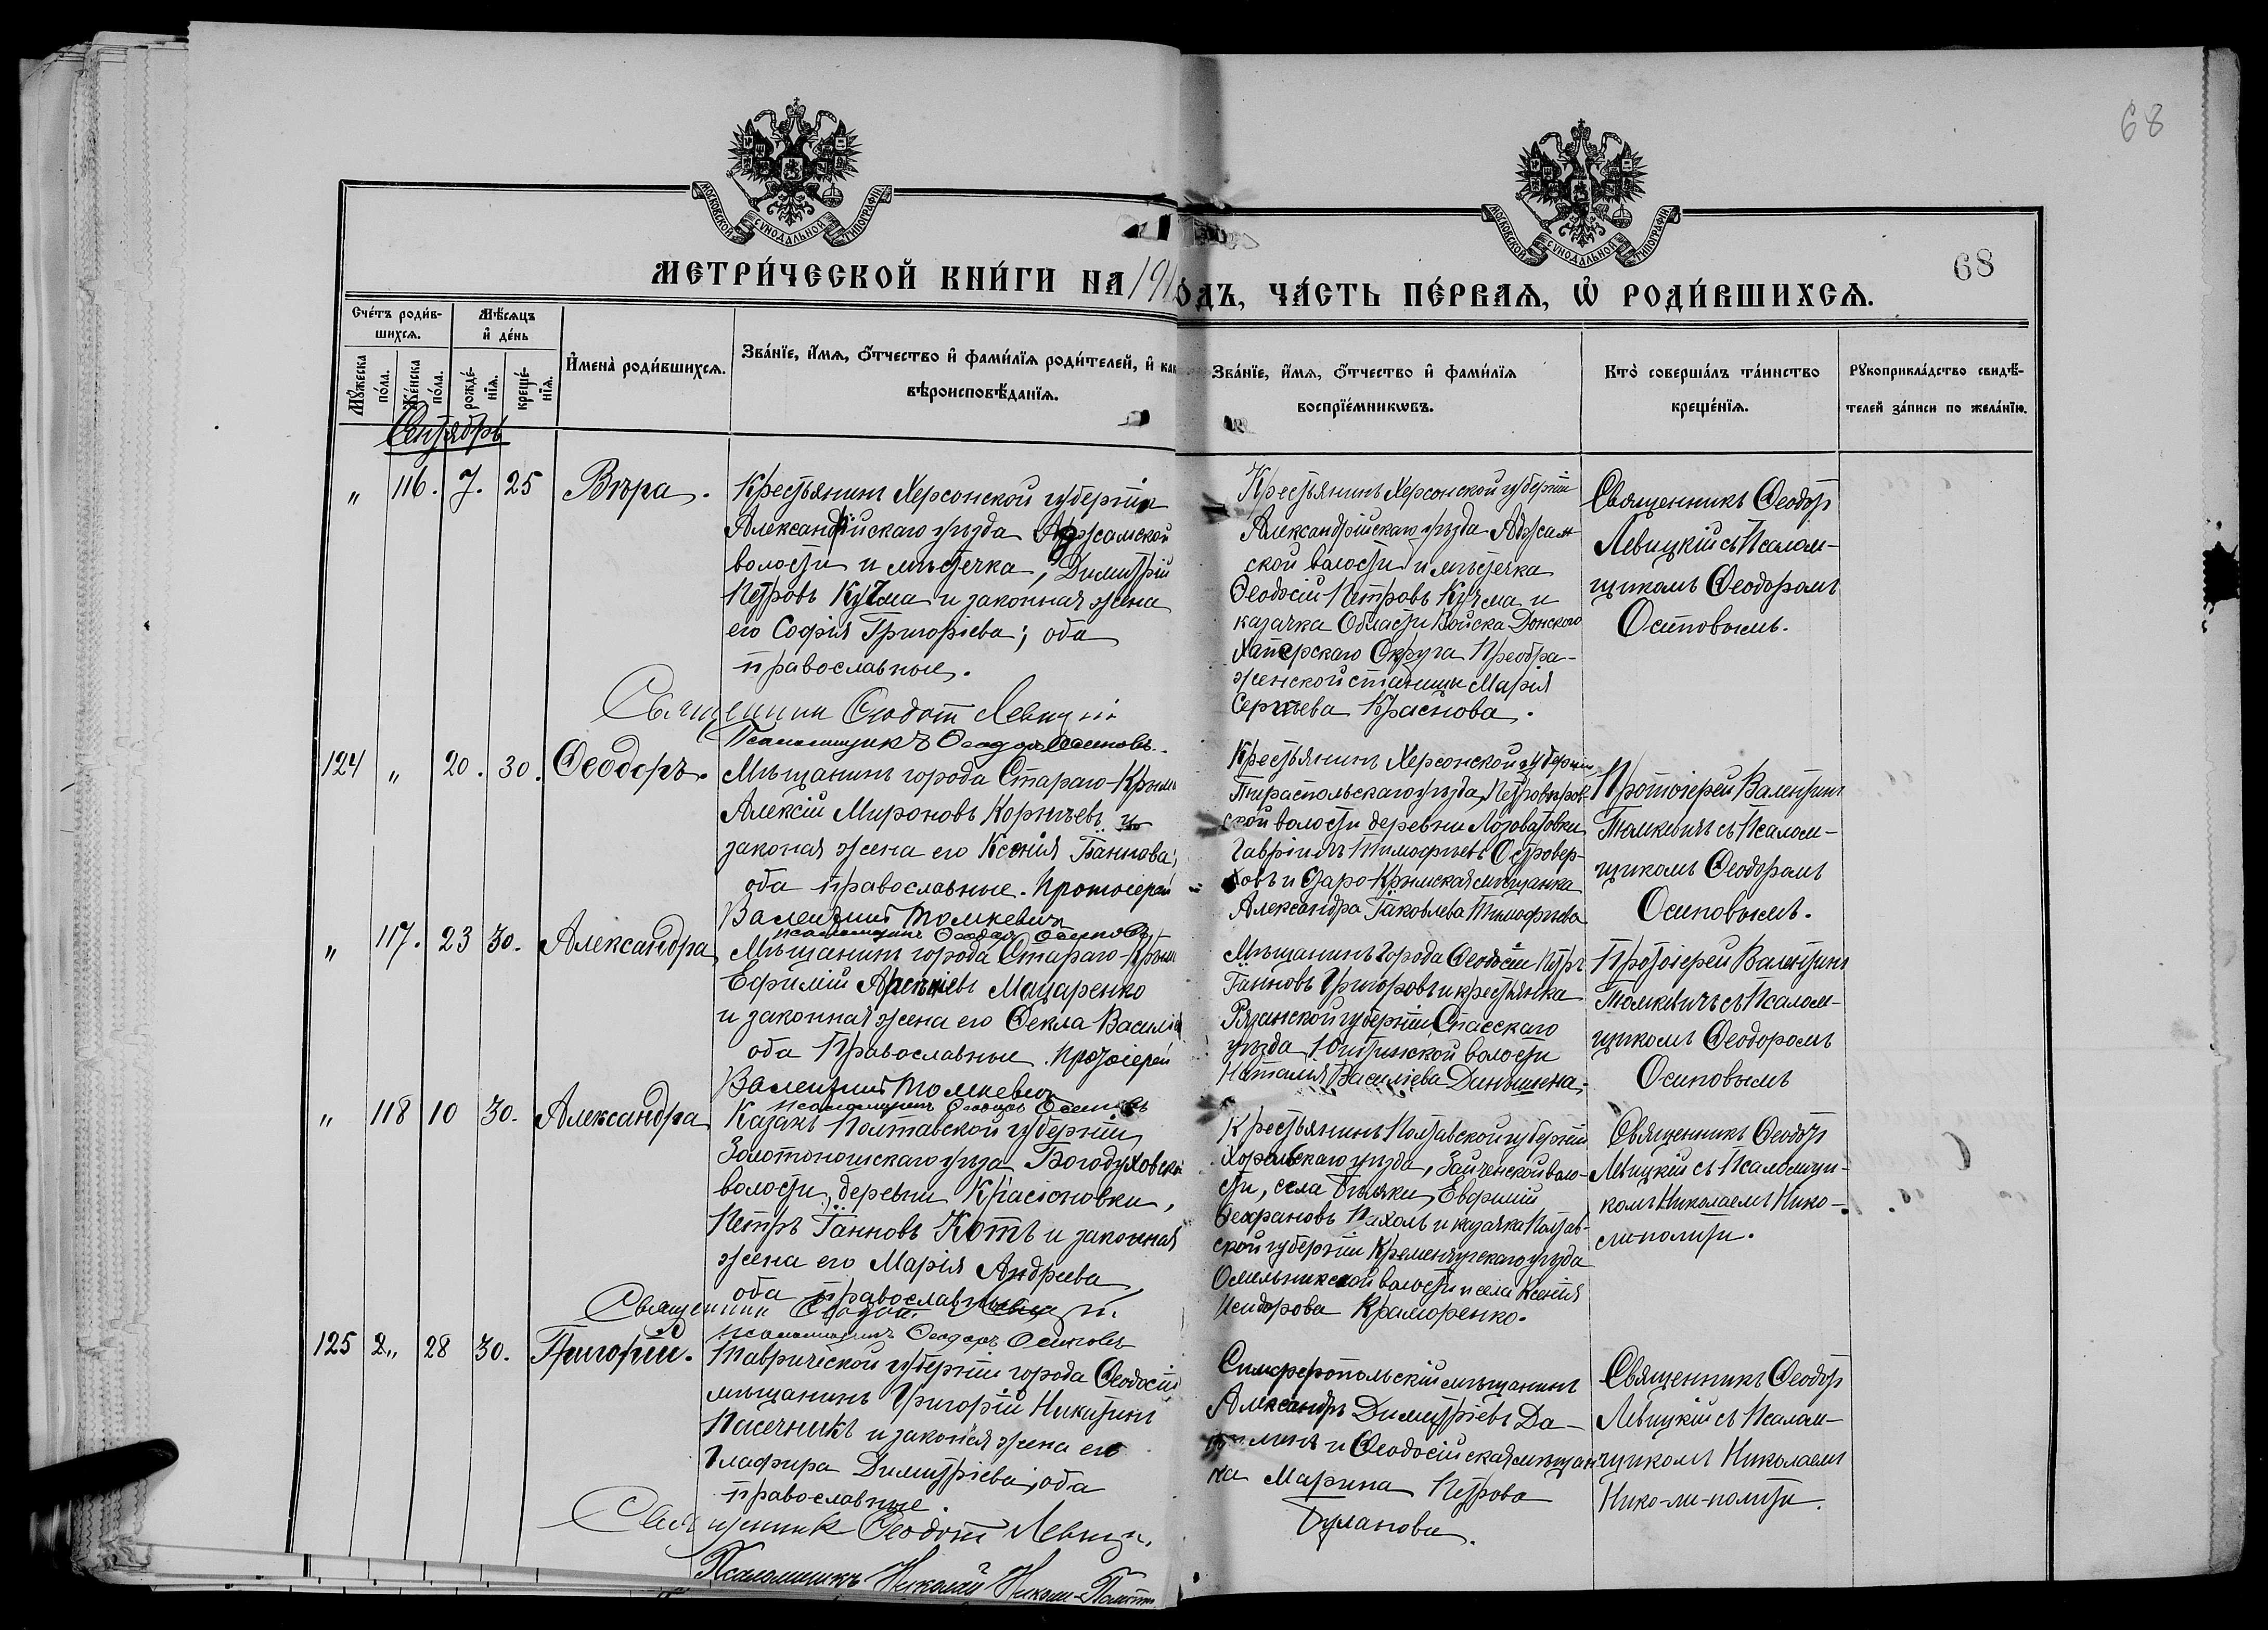 68
МОСКОВСКОЙ СѴНОДАЛЬНОЙ ТИПОГРАФІИ
МОСКОВСКОЙ СѴНОДАЛЬНОЙ ТИПОГРАФІИ
68
МЕТРИ́ЧЕСКОЙ КНИ́ГИ НА 191
ОДЪ, ЧА́СТЬ ПЕ́РВАѦ, Ѡ҆ РОДИ́ВШИХСѦ.
Сче́тъ роди́в-
шихсѧ.
Мѣ́сѧцъ
и҆ де́нь
Мꙋ́жеска
по́ла.
Же́нска
по́ла.
рожде́-
нїѧ.
креще́-
нїѧ.
И҆мена̀ роди́вшихсѧ.
Зва́нїе, и҆́мѧ, ѻ҆́тчество и҆ фами́лїѧ роди́телей, и҆ как
вѣроисповѣ́данїѧ.
Зва́нїе, и҆́мѧ, ѻ҆́тчество и҆ фами́лїѧ
воспрїе́мникѡвъ.
Кто̀ соверша́лъ та́инство
креще́нїѧ.
Рꙋкоприкла́дство свидѣ́-
телей за́писи по жела́нїю.
Сентябрь
" 116. 7. 25 Вѣра.
Крестьянинъ Херсонской губерніи
Александрійскаго уѣзда Аджамской
волости и мѣстечка, Димитрій
Петровъ Кучма и законная жена
его Софія Григоріева; оба
православные.
Священник Феодот Левицкій
Псаломщикъ Феодоръ Осиповъ.
Крестьянинъ Херсонской губерніи
Александрійскаго уѣзда Аджам-
ской волости и мѣстечка
Феодосій Петровъ Кучма и
казачка Области Войска Донского
Хоперскаго Округа Преобра-
женской станицы Марія
Сергѣева Краснова.
Священникъ Феодотъ
Левицкій съ Псалом-
щикомъ Феодоромъ
Осиповымъ.
124 " 20. 30. Феодоръ.
Мѣщанинъ города Стараго-Крыма
Алексій Мироновъ Корнѣевъ и
законая жена его Ксенія Іаннова;
оба православные. Протоіерей
Валентинъ Томкевич
Псаломщикъ Феодоръ Осиповъ
Крестьянинъ Херсонской губерніи,
Тираспольскаго уѣзда, Петровѣров-
ской волости деревни Лозоватовки
Гавріилъ Тимофѣевъ Островер-
ховъ и Старо-Крымская мѣщанка
Александра Іаковлева Тимофѣева
Протоіерей Валентинъ
Томкевичъ съ Псалом-
щикомъ Феодоромъ
Осиповымъ.
" 117. 23 30. Александра
Мѣщанинъ города Стараго-Крыма
Ефимій Арсеніевъ Мацаренко
и законная жена его Фекла Василіева
оба Православные. Протоіерей
Валентинъ Томкевич
Псаломщикъ Феодоръ Осиповъ
Мѣщанинъ города Феодосіи Петръ
Іанновъ Григоровъ и крестьянка
Рязанской губерніи Спасскаго
уѣзда волости
Наталія Василіева Динышина.
Протоіерей Валентинъ
Томкевичъ съ Псалом-
щикомъ Феодоромъ
Осиповымъ
" 118 10 30. Александра
Казакъ Полтавской губерніи
Золотоношскаго уѣзда Богодуховской
волости, деревни Красіоновки,
Петръ Іанновъ Котъ и законная
жена его Марія Андреева
оба православные
Священник Феодот Левицкій
Псаломщикъ Феодоръ Осиповъ
Крестьянинъ Полтавской губерніи
Хорольскаго уѣзда, Зайченской воло-
сти, села Бѣляки, Евфимій
Феофановъ Пахолъ и казачка Полтав-
ской губерніи Кременчугскаго уѣзда
Омельникской волости и села Ксенія
Исидорова Краморенко.
Священникъ Феодотъ
Левицкій съ Псаломщи-
комъ Николаемъ Нико-
ли-полити.
125 " 28 30. Григорій.
Таврической губерніи города Феодосіи
мѣщанинъ Григорій Никитинъ
Пасечникъ и законая жена его
Глафира Димитріева; оба
православные.
Священник Феодот Левицкій
Псаломщикъ Николай Николи-Полити
Симферопольскій мѣщанинъ
Александръ Димитріевъ Да-
и Феодосійская мѣщан-
ка Марина Петрова
Буланова.
Священникъ Феодотъ
Левицкій съ Псалом-
щикомъ Николаемъ
Нико-ли-полити.